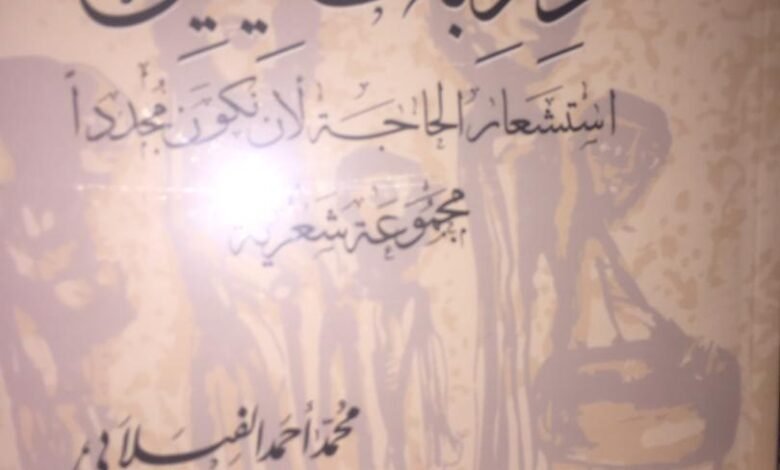 استشعار الحاجة لأن نكون مجدداً
مجموعة شعرية
محمد أحمد الفيلابي